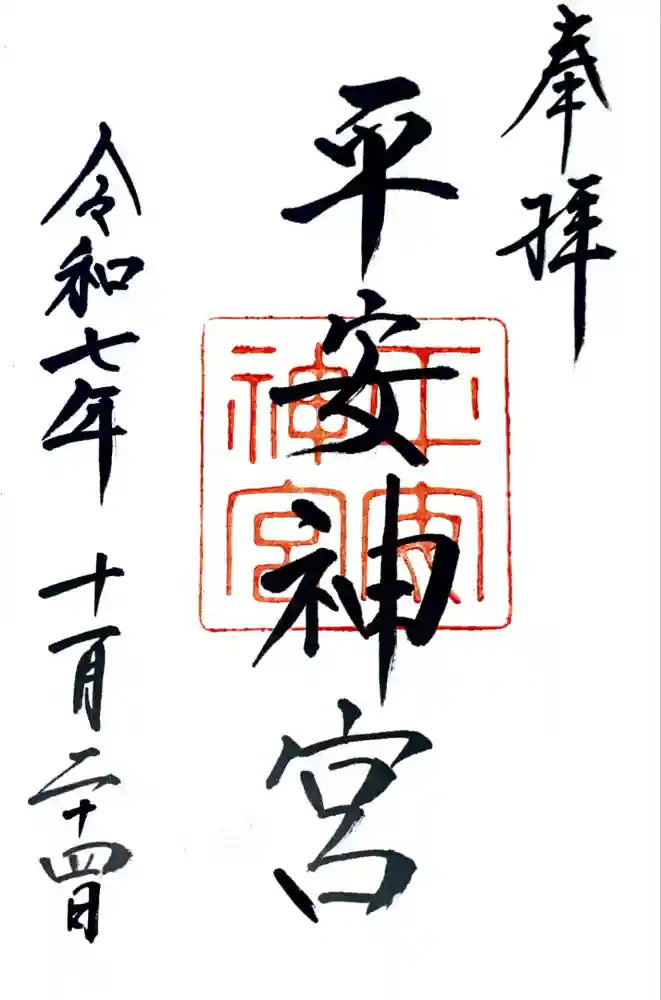 奉拝
平安神宮
平安
神宮
令和七年 十一月二十四日